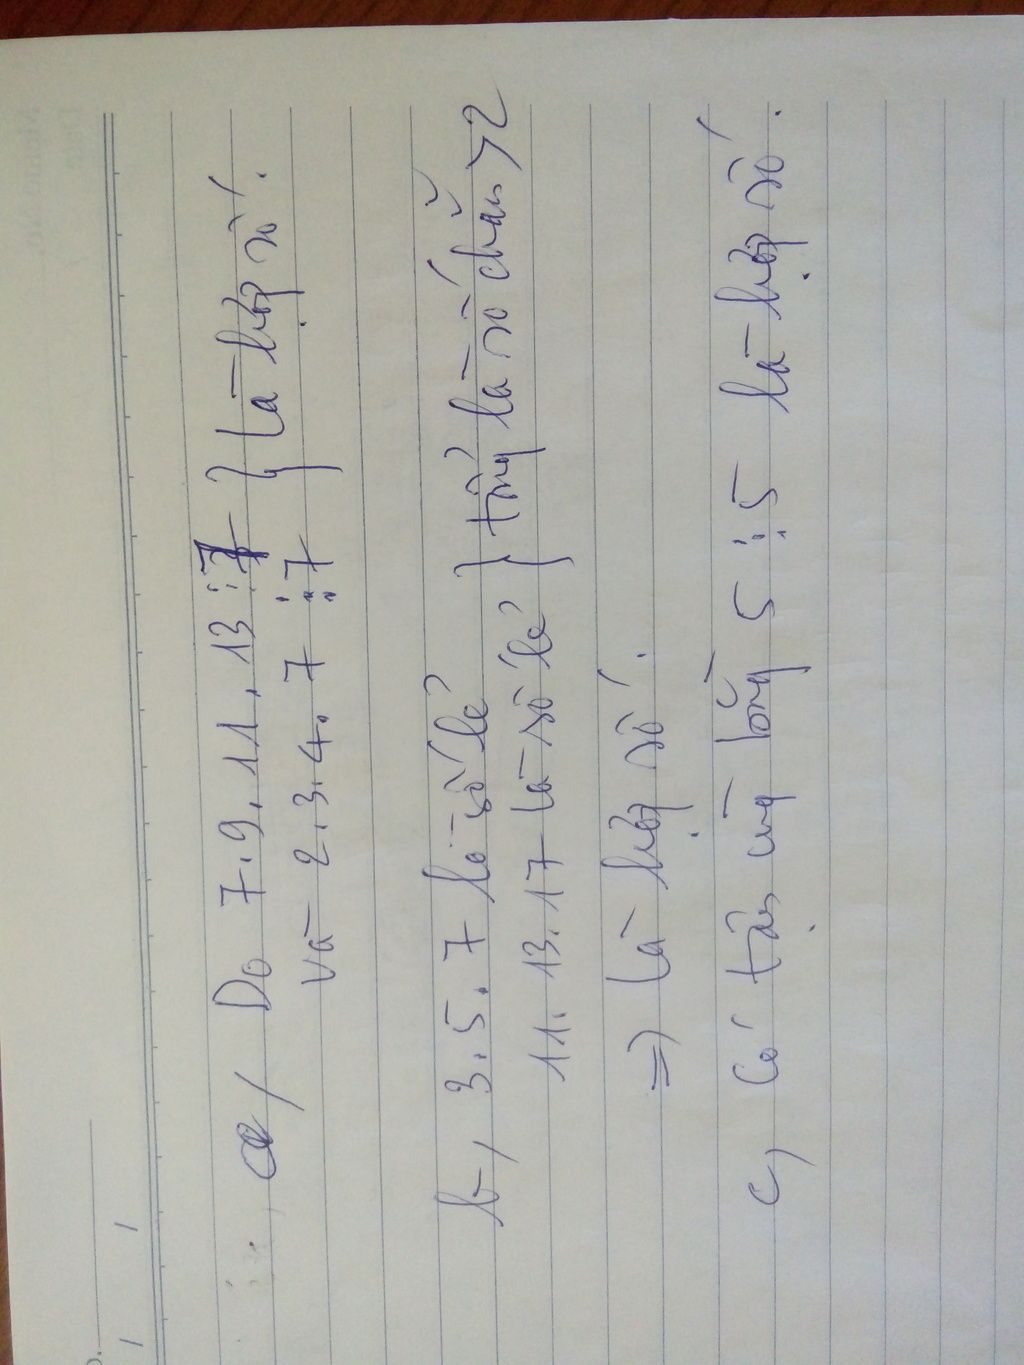 a, Do 7.9.11.13 ⋮ 7 } là hợp số.
và 2.3.4.7 ⋮ 7
b, 3.5.7 là số lẻ } tổng là số chẵn > 2
11.13.17 là số lẻ
=> là hợp số.
c, Có tận cùng bằng 5 ⋮ 5 là hợp số.